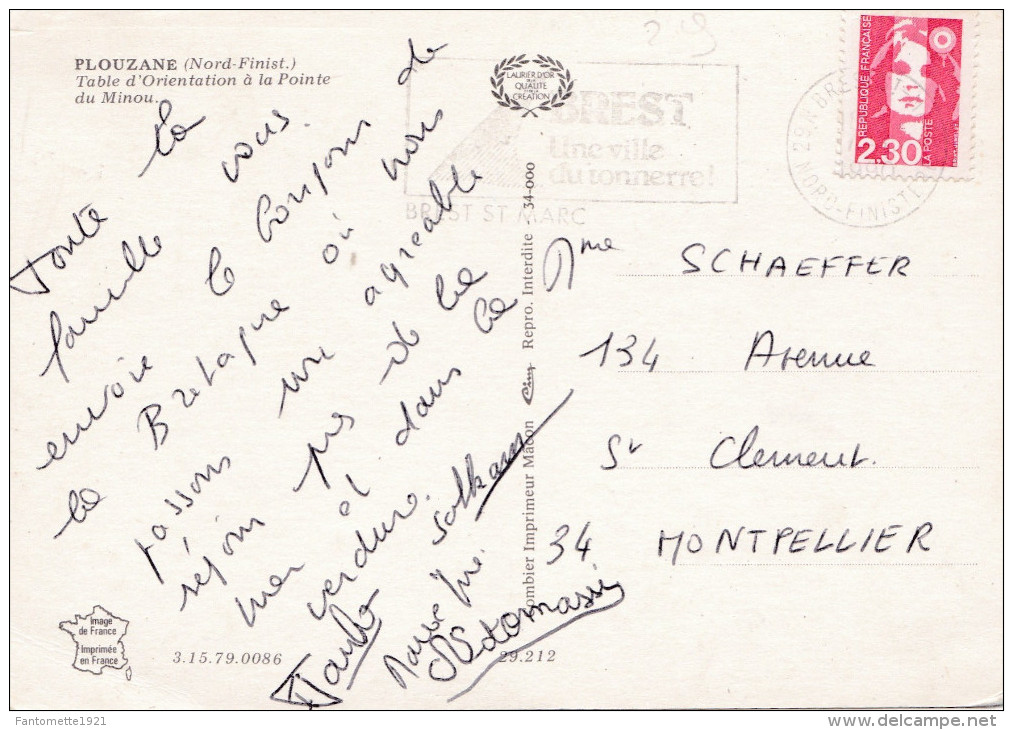 PLOUZANE (Nord-Finist.)
Table d'Orientation à la Pointe
du Minou.
LAURIER D'OR
DE LA
QUALITÉ
CRÉATION
BREST
Une ville
du tonnerre!
BREST ST MARC
29A BREST
NORD-FINISTERE
REPUBLIQUE FRANÇAISE
2.30
LA POSTE
Toute la
famille vous
envoie le bonjour de
la Bretagne où nous
passons une agréable
séjour
mer et dans la
verdure.
Mme SCHAEFFER
134 Avenue
St Clement.
34 MONTPELLIER
ombier Imprimeur Mâcon Cim Repro. Interdite 34-000
Image
de France
Imprimée
en France
3.15.79.0086
29.212
Fantomette1921
delcampe.net